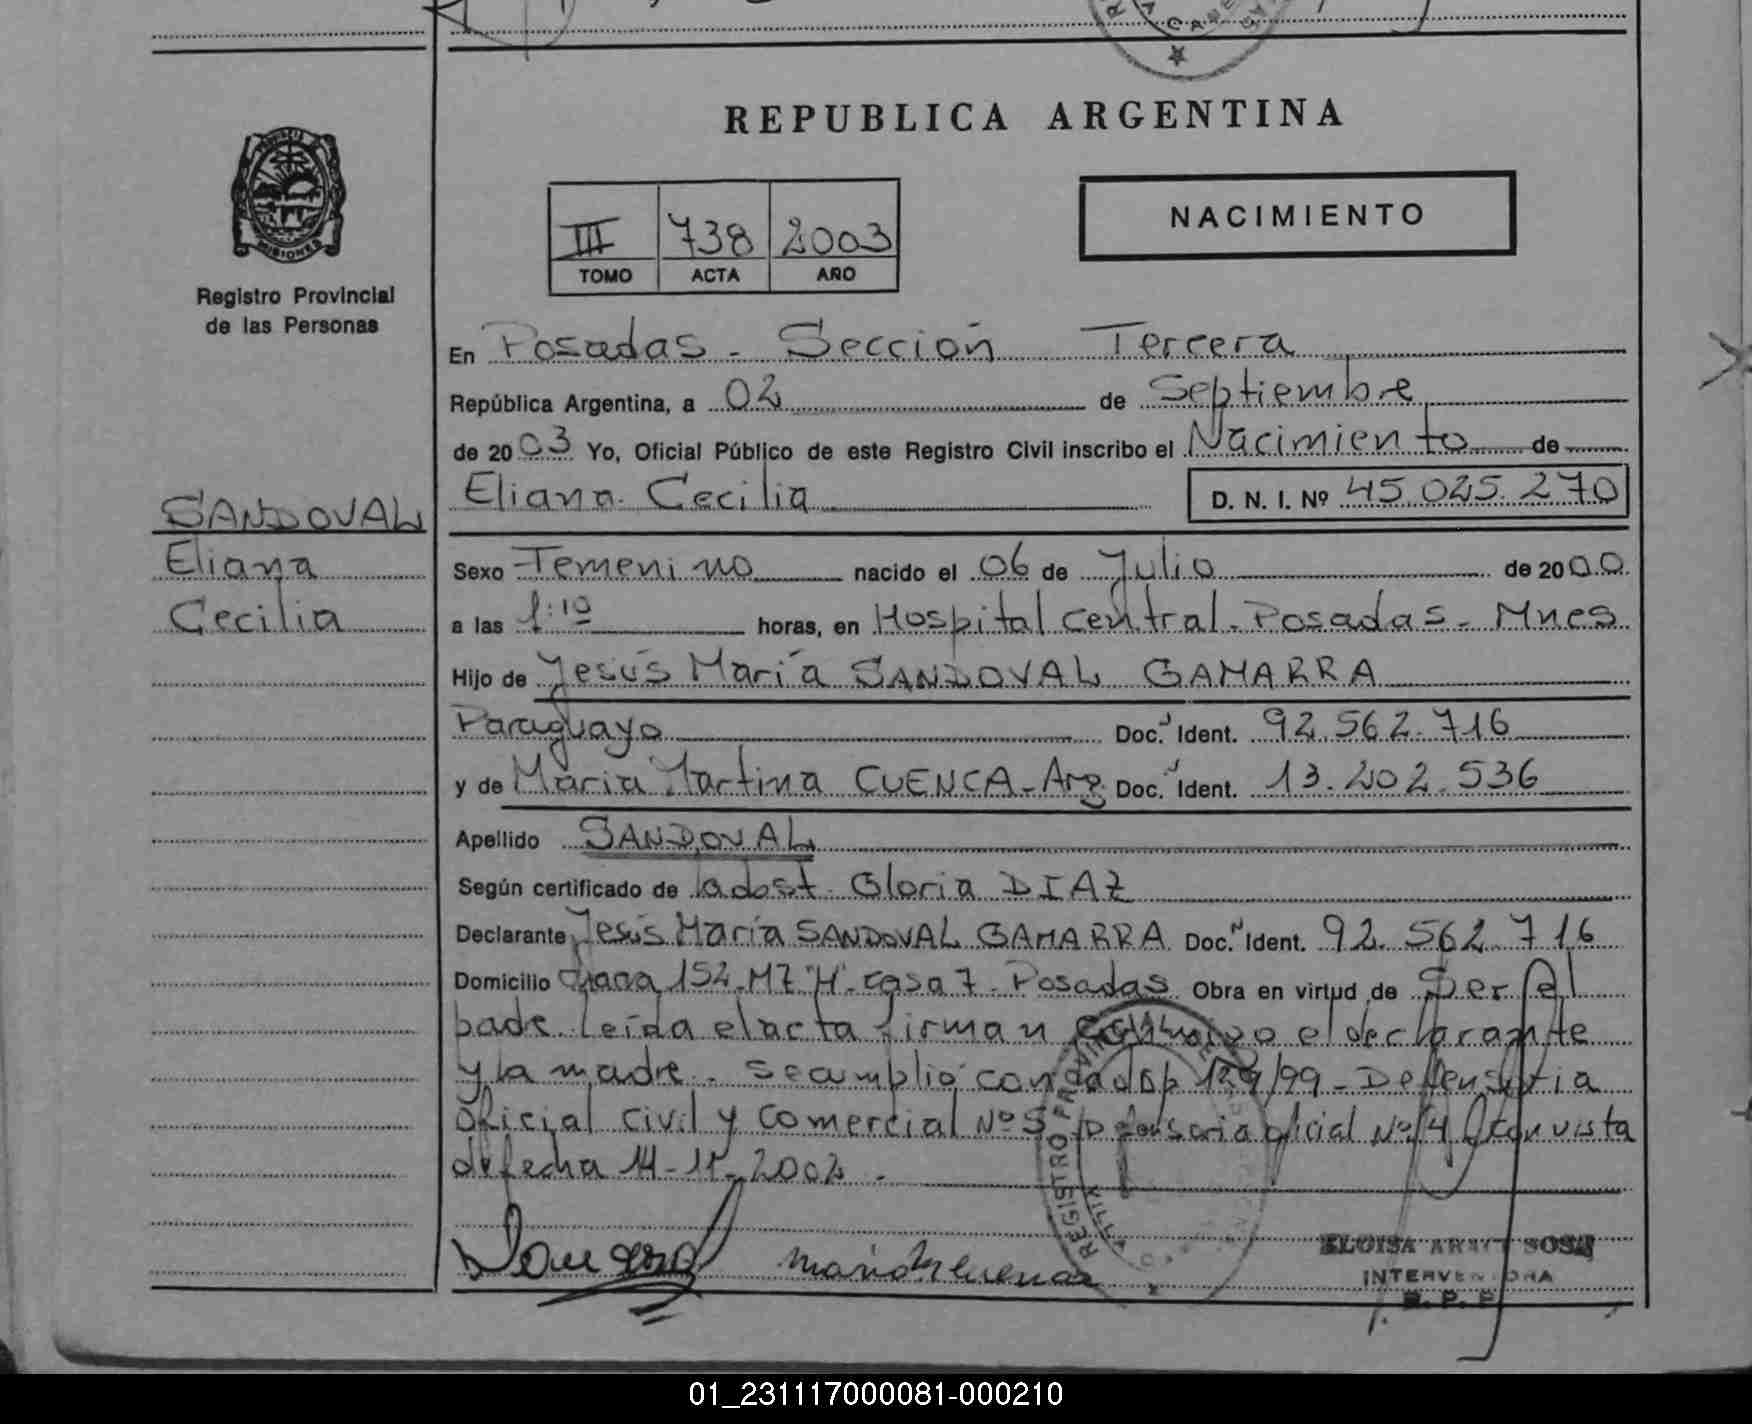 REPUBLICA ARGENTINA
MISIONES
Registro Provincial
de las Personas
III 738 2003
TOMO ACTA AÑO
NACIMIENTO
SANDOVAL
Eliana
Cecilia
En Posadas - Sección Tercera
República Argentina, a 02 de Septiembre
de 2003 Yo, Oficial Público de este Registro Civil inscribo el Nacimiento de
Eliana Cecilia D. N. I. Nº 45.025.270
Sexo Femenino nacido el 06 de Julio de 2000
a las 1:10 horas, en Hospital Central - Posadas - Mnes
Hijo de Jesús María SANDOVAL GAMARRA
Paraguayo Doc. Ident. 92.562.716
y de María Martina CUENCA - Arg Doc. Ident. 13.202.536
Apellido SANDOVAL
Según certificado de obst. Gloria DIAZ
Declarante Jesús María SANDOVAL GAMARRA Doc. Ident. 92.562.716
Domicilio 152 - MZ "H" - casa 7 - Posadas Obra en virtud de Ser el
padre. Leída el acta firman el declarante
y la madre. Se cumplió con 129/99 - Defensoria
Oficial Civil y Comercial Nº 5 Defensoria Oficial Nº 4 con vista
de fecha 14-11-2002.
REGISTRO PROVINCIAL DE
ELOISA ARACI SOSA
INTERVENTORA
R. P. P.
01_231117000081-000210